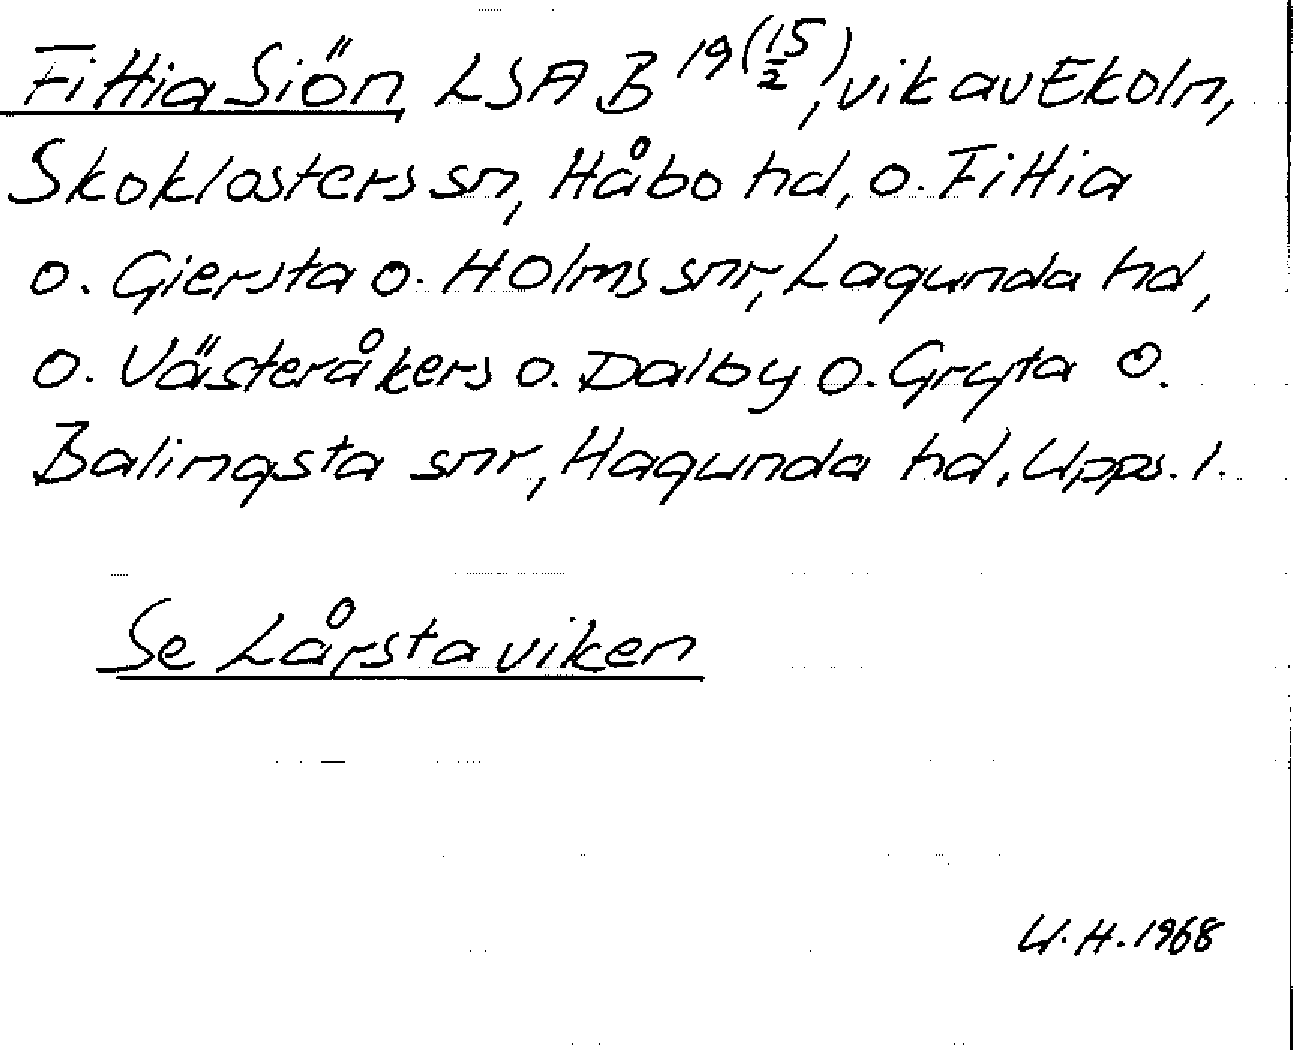 Fittia Siön LSA B 19 (15/2), vik av Ekoln,
Skoklosters sn, Håbo hd, o. Fittia
o. Giersta o. Holms snr, Lagunda hd,
o. Västeråkers o. Dalby o. Gryta o.
Balingsta snr, Hagunda hd. Upps. l.
Se Lårstaviken
U. H. 1968